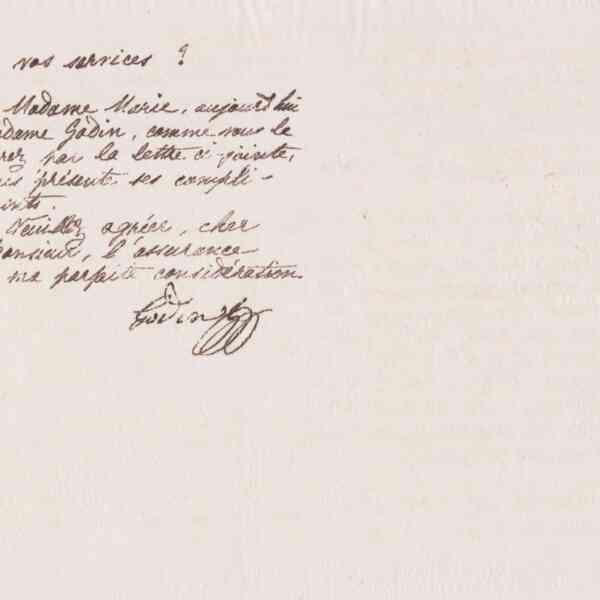 vos services ?
Madame Marie, aujourd'hui
adame Godin, comme vous le
rez par la lettre ci-jointe,
us présente ses compli-
ents.
Veuillez agréer, cher
onsieur, l'assurance
ma parfaite considération.
Godin